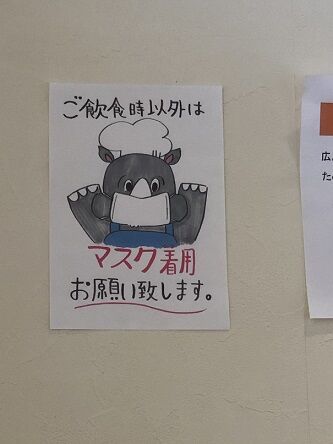 ご飲食時以外は
マスク着用
お願い致します。
広
た